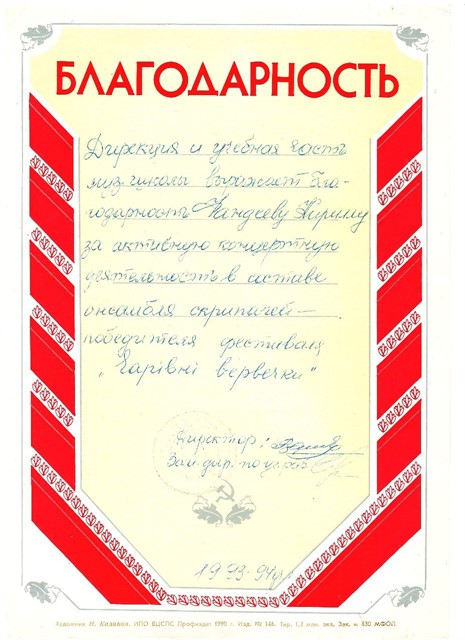 БЛАГОДАРНОСТЬ
Дирекция и учебная часть
музшколы выражает бла-
годарность Кириллу
за активную концертную
деятельность в составе
ансамбля скрипачей —
победителя фестиваля
„Чарівні вервечки"
Директор:
Зам. дир. по уч. раб.
1993-94г.
Художник Н. ИПО ВЦСПС Профиздат 1990 г. Изд. № 146. Тир. 1,2 млн. экз. Зак. 830 МФОЛ